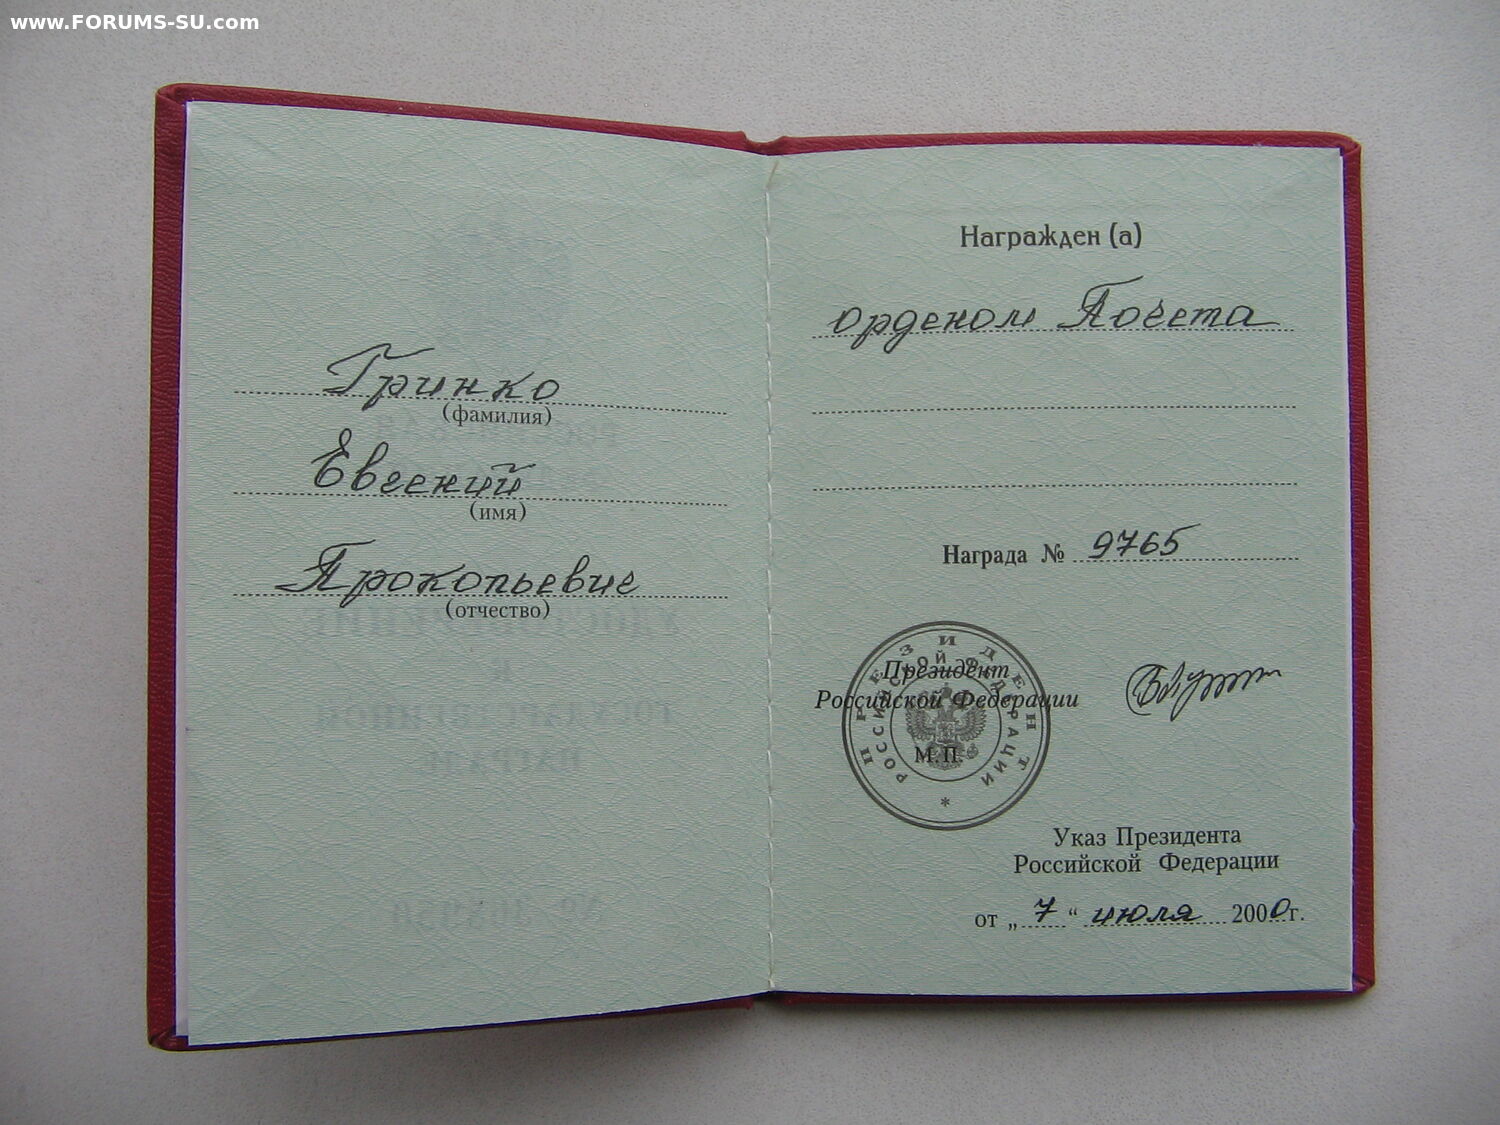 www.FORUMS-SU.com
Гринко
(фамилия)
Евгений
(имя)
Прокопьевич
(отчество)
Награжден (а)
орденом Почета
Награда № 9765
Президент
Российской Федерации
М.П.
ПРЕЗИДЕНТ
РОССИЙСКОЙ ФЕДЕРАЦИИ
Указ Президента
Российской Федерации
от „ 7 “ июля 2000г.